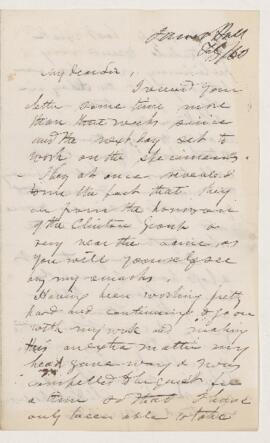 James Hall
/60
My dear Sir,
I received your
letter some time more
than that weeks since
and the next day set to
work on the specimens
They at once revealed
the fact that they
are from the horizon
of the Clinton Group or
very near the same, as
you will yourself see
by my remarks.
Having been working pretty
hard and continuing to go on
with my work and making
this an extra matter my
head gave way & I was
compelled to quit for
a time so that I have
only been able to take